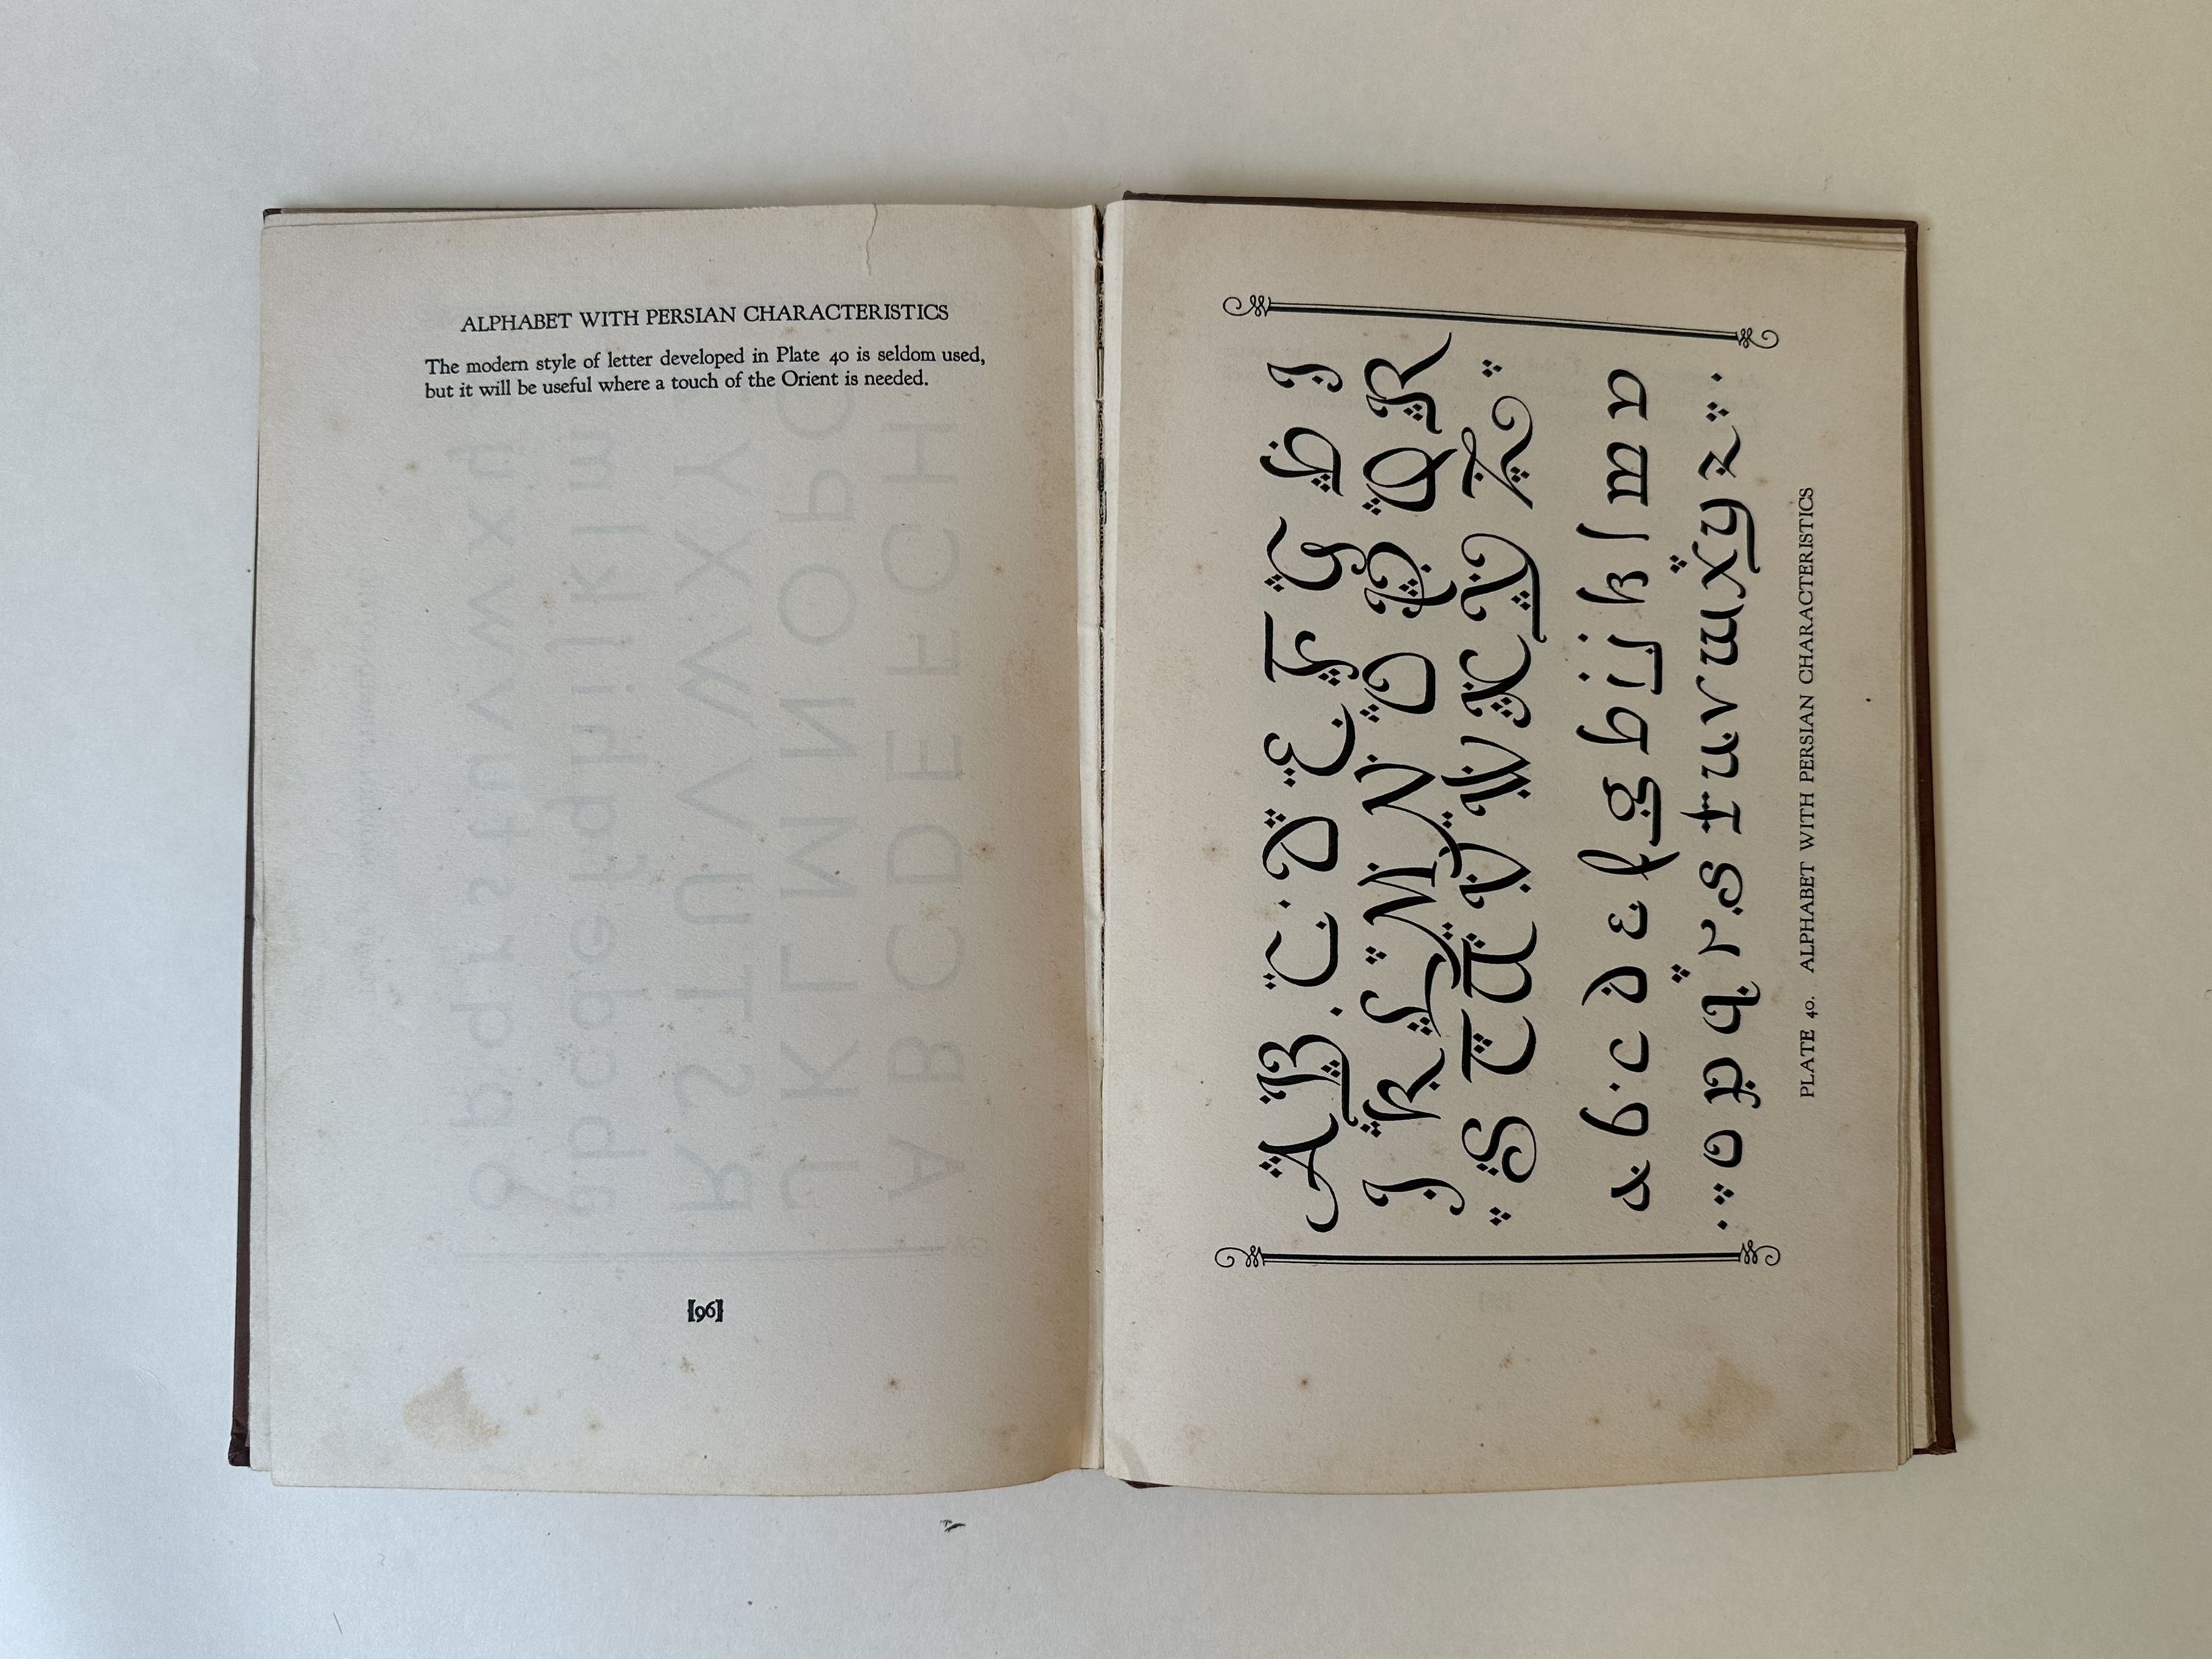 ALPHABET WITH PERSIAN CHARACTERISTICS
The modern style of letter developed in Plate 40 is seldom used,
but it will be useful where a touch of the Orient is needed.
[96]
A B . C . D E F G H I
J K L M N O P Q R
S T U V W X Y Z
a b . c d e f g h i j k l m n
o p q r s t u v w x y z
PLATE 40. ALPHABET WITH PERSIAN CHARACTERISTICS